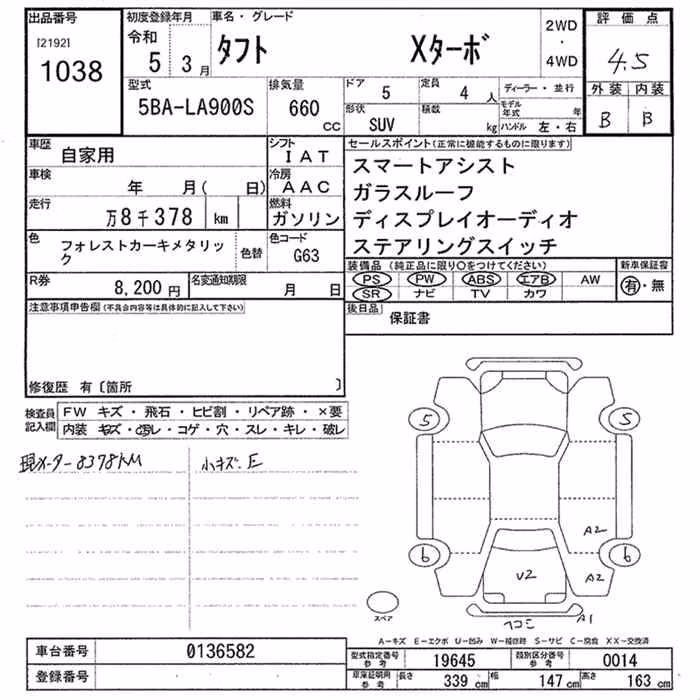 出品番号
[2192]
1038
初度登録年月
令和
5 3月
車名・グレード
タフト Xターボ
2WD
・
4WD
評価点
4.5
外装 内装
B B
型式
5BA-LA900S
排気量
660 cc
ドア 5
定員 4 人
形状 SUV
積数 kg
ディーラー・並行
モデル年式 年
ハンドル 左・右
車歴 自家用
シフト IAT
車検 年 月( 日)
冷房 AAC
走行 万8千378 km
燃料 ガソリン
色 フォレストカーキメタリック
色替
色コード G63
R券 8,200円
名変通知期限 月 日
セールスポイント(正常に機能するものに限ります)
スマートアシスト
ガラスルーフ
ディスプレイオーディオ
ステアリングスイッチ
装備品 (純正品に限り○をつけてください)
新車保証書
PS PW ABS エアB AW
SR ナビ TV カワ
有・無
後日品 保証書
注意事項申告欄(不具合内容等は具体的に記入して下さい)
修復歴 有〔箇所 〕
検査員記入欄
FW キズ・飛石・ヒビ割・リペア跡・×要
内装 キズ・汚レ・コゲ・穴・スレ・キレ・破レ
現メーター8378KM
小キズ、E
5 5
A2
6 6
U2 A2
スペア
ヘコミ A1
A-キズ E-エクボ U-凹み W-補修跡 S-サビ C-腐食 XX-交換済
車台番号 0136582
登録番号
型式指定番号 参考 19645
類別区分番号 参考 0014
車庫証明用 参考 長さ 339 cm 幅 147 cm 高さ 163 cm